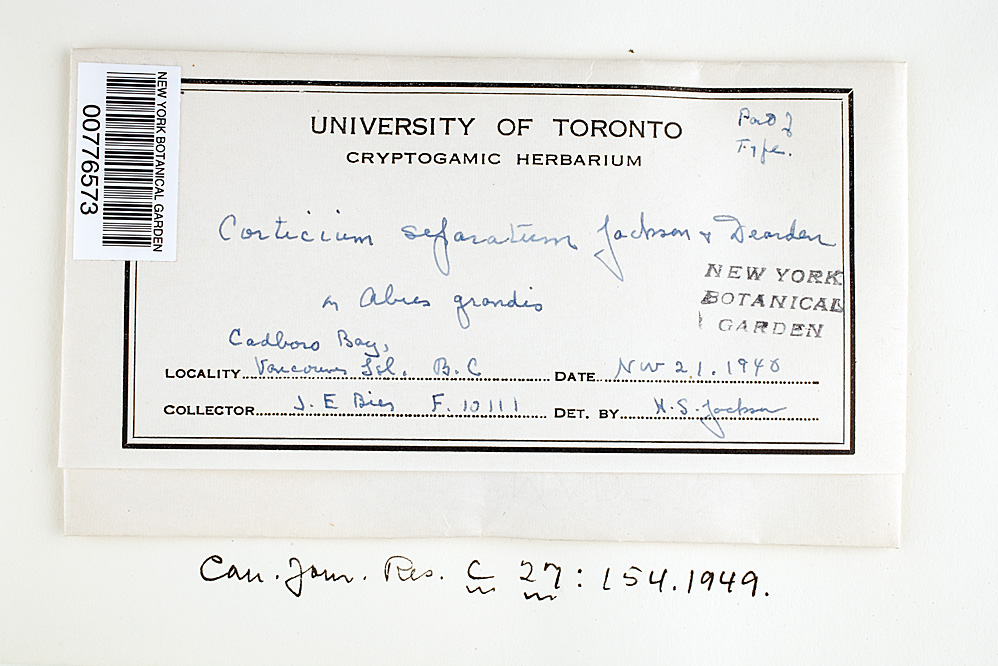 NEW YORK BOTANICAL GARDEN
00776573
UNIVERSITY OF TORONTO
CRYPTOGAMIC HERBARIUM
Part of
Type.
Corticium separatum Jackson & Dearden
NEW YORK
BOTANICAL
GARDEN
on Abies grandis
Cadboro Bay,
LOCALITY Vancouver Isl. B.C DATE Nov 21. 1940
COLLECTOR J. E Bier F. 10111 DET. BY H. S. Jackson
Can. Jour. Res. C 27 : 154. 1949.